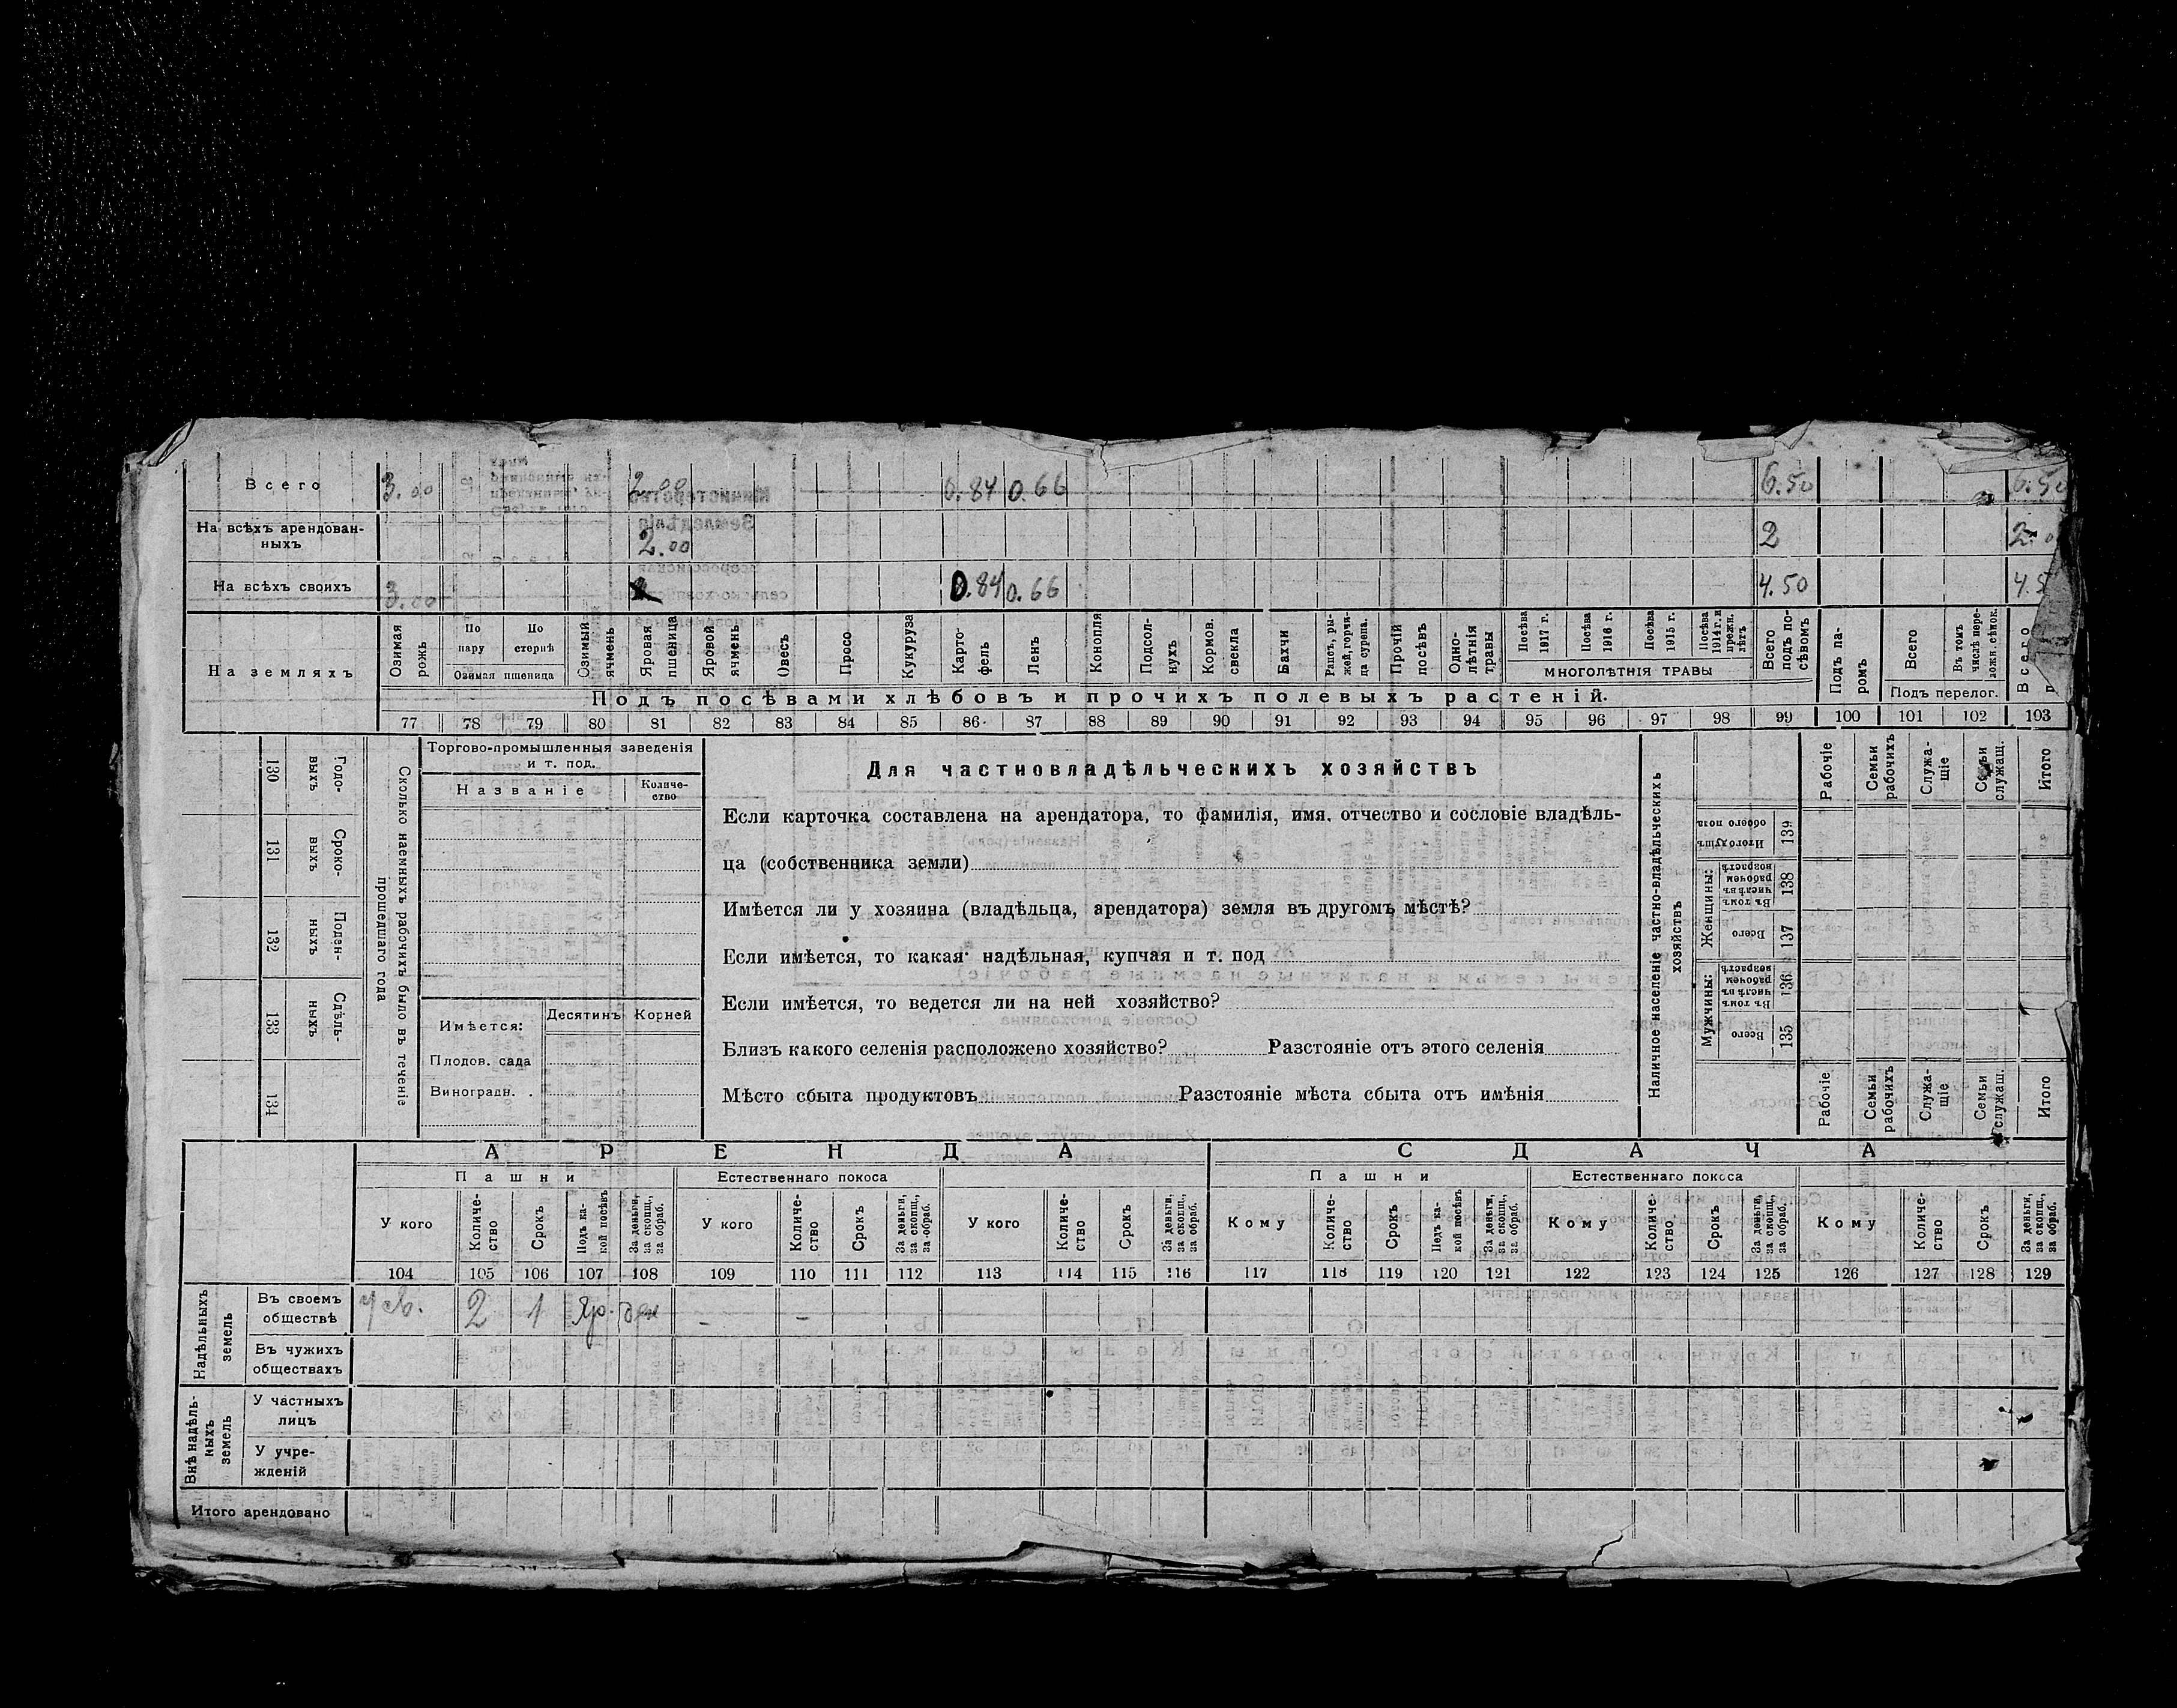 Всего 3.00 2.00 0.84 0.66 6.50 6.50
На всѣхъ арендован-
ныхъ 2.00 2 2.0
На всѣхъ своихъ 3.00 0.84 0.66 4.50 4.5
На земляхъ
Озимая рожь
По пару
По стернѣ
Озимая пшеница
Озимый ячмень
Яровая пшеница
Яровой ячмень
Овесъ
Просо
Кукуруза
Карто-
фель
Ленъ
Конопля
Подсол-
нухъ
Кормов.
свекла
Бахчи
Рапсъ, ры-
жей, горчи-
ца сурепа.
Прочій
посѣвъ
Одно-
лѣтнія
травы
Посѣва
1917 г.
Посѣва
1916 г.
Посѣва
1915 г.
Посѣва
1914 г. и
прежн.
лѣтъ
МНОГОЛѢТНІЯ ТРАВЫ
Всего
подъ по-
сѣвомъ
Подъ па-
ромъ
Всего
Въ томъ
числѣ пере-
ложн. сѣнок.
Подъ перелог.
Всего
Подъ посѣвами хлѣбовъ и прочихъ полевыхъ растеній.
77 78 79 80 81 82 83 84 85 86 87 88 89 90 91 92 93 94 95 96 97 98 99 100 101 102 103
130 Годо-
выхъ
131 Сроко-
выхъ
132 Поден-
ныхъ
133 Сдѣль-
ныхъ
134
Сколько наемныхъ рабочихъ было въ теченіе
прошедшаго года
Торгово-промышленныя заведенія
и т. под.
Названіе
Количе-
ство
Имѣется:
Десятинъ
Корней
Плодов. сада
Виноградн.
Для частновладѣльческихъ хозяйствъ
Если карточка составлена на арендатора, то фамилія, имя, отчество и сословіе владѣль-
ца (собственника земли)
Имѣется ли у хозяина (владѣльца, арендатора) земля въ другомъ мѣстѣ?
Если имѣется, то какая: надѣльная, купчая и т. под
Если имѣется, то ведется ли на ней хозяйство?
Близъ какого селенія расположено хозяйство? Разстояніе отъ этого селенія
Мѣсто сбыта продуктовъ Разстояніе мѣста сбыта отъ имѣнія
Наличное населеніе частно-владѣльческихъ
хозяйствъ
Итого душъ
обоего пола
139
Женщины:
Въ томъ
числѣ въ
рабочемъ
возрастѣ
138
Всего
137
Мужчины:
Въ томъ
числѣ въ
рабочемъ
возрастѣ
136
Всего
135
Рабочіе
Семьи
рабочихъ
Служа-
щіе
Семьи
служащ.
Итого
Рабочіе
Семьи
рабочихъ
Служа-
щіе
Семьи
служащ.
Итого
АРЕНДА
СДАЧА
Пашни
Естественнаго покоса
Пашни
Естественнаго покоса
У кого
Количе-
ство
Срокъ
Подъ ка-
кой посѣвъ
За деньги,
за скопщ.,
за обраб.
У кого
Количе-
ство
Срокъ
За деньги,
за скопщ.,
за обраб.
У кого
Количе-
ство
Срокъ
За деньги,
за скопщ.,
за обраб.
Кому
Количе-
ство
Срокъ
Подъ ка-
кой посѣвъ
За деньги,
за скопщ.,
за обраб.
Кому
Количе-
ство
Срокъ
За деньги,
за скопщ.,
за обраб.
Кому
Количе-
ство
Срокъ
За деньги,
за скопщ.,
за обраб.
104 105 106 107 108 109 110 111 112 113 114 115 116 117 118 119 120 121 122 123 124 125 126 127 128 129
Надѣльныхъ
земель
Въ своемъ
обществѣ 2 1 Яр. ден
Въ чужихъ
обществахъ
Внѣ надѣль-
ныхъ
земель
У частныхъ
лицъ
У учре-
жденій
Итого арендовано